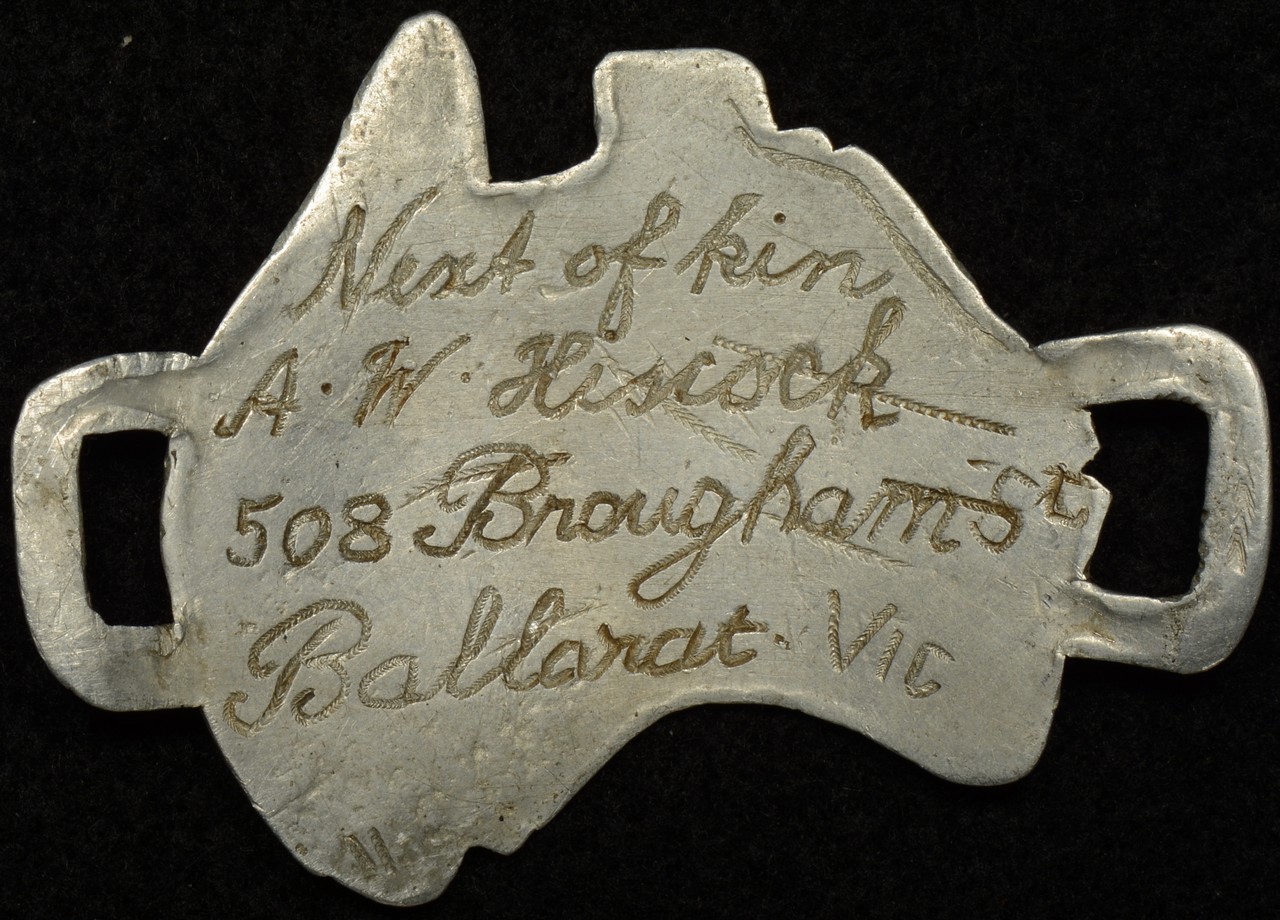 Next of kin
A. W. Hiscock
508 Brougham St
Ballarat. Vic